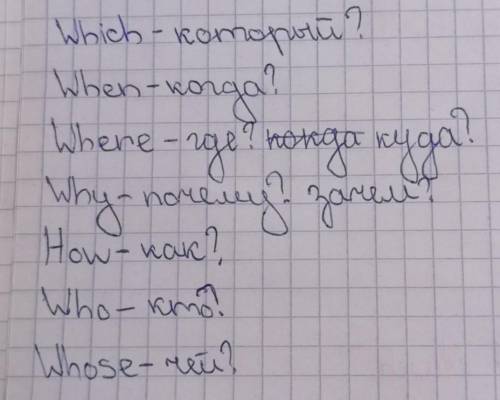 Which - который?
When - когда?
Where - где? когда куда?
Why - почему? зачем?
How - как?
Who - кто?
Whose - чей?